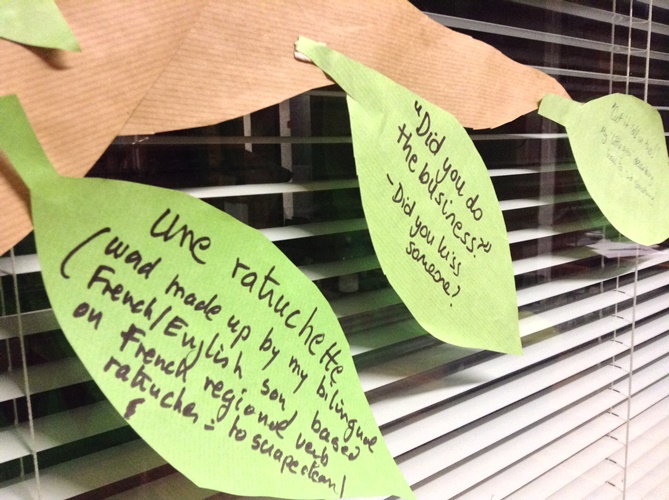 Une ratuchette
(word made up by my bilingual
French/English son, based
on French regional verb
ratucher = to scrape clean)
"Did you do
the business?"
- Did you kiss
someone?